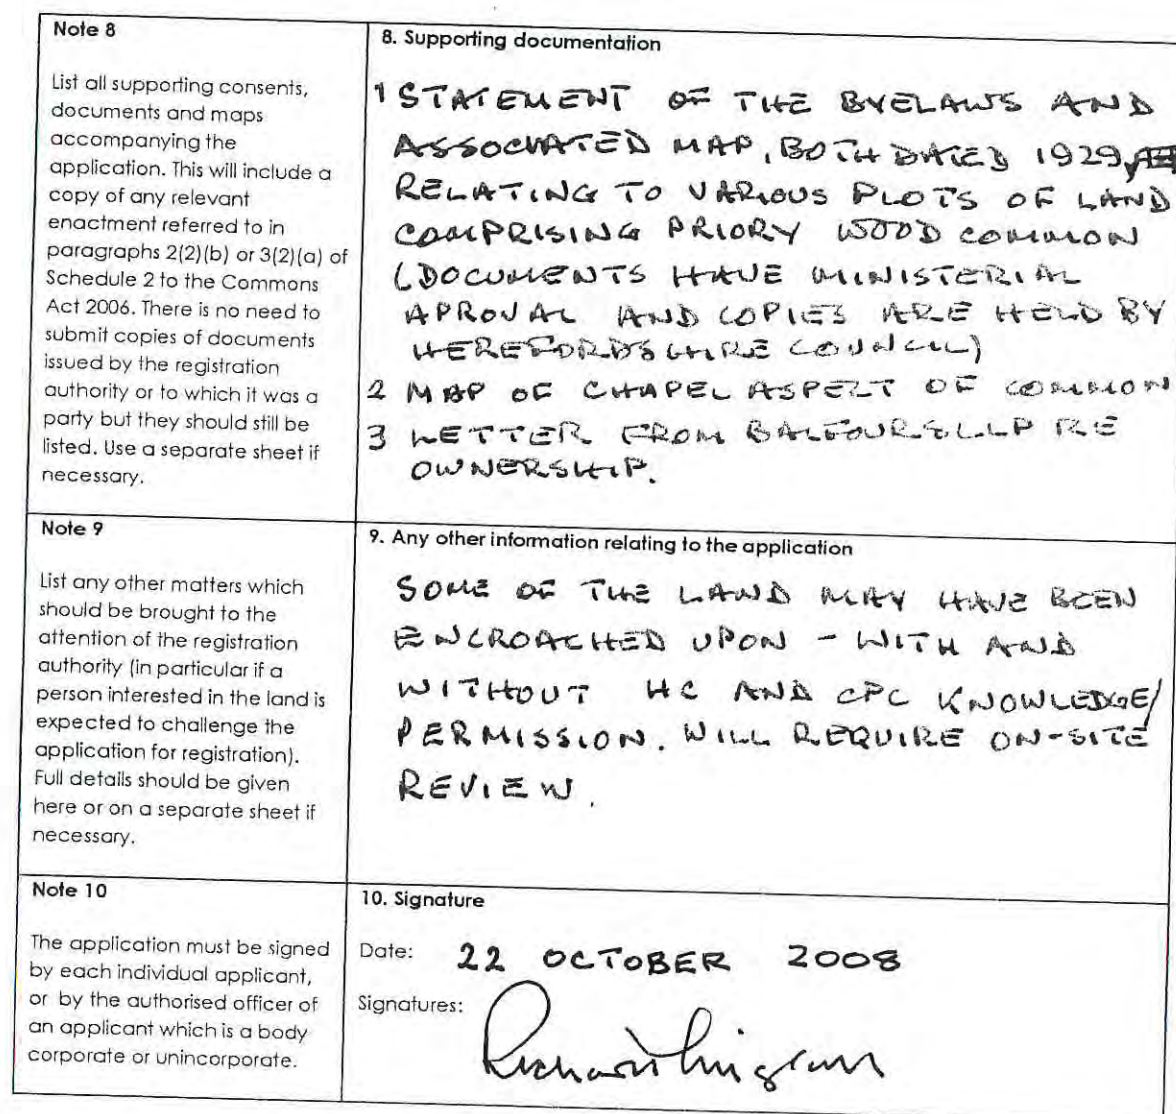 Note 8
List all supporting consents,
documents and maps
accompanying the
application. This will include a
copy of any relevant
enactment referred to in
paragraphs 2(2)(b) or 3(2)(a) of
Schedule 2 to the Commons
Act 2006. There is no need to
submit copies of documents
issued by the registration
authority or to which it was a
party but they should still be
listed. Use a separate sheet if
necessary.
8. Supporting documentation
1 STATEMENT OF THE BYELAWS AND
ASSOCIATED MAP, BOTH DATED 1929,
RELATING TO VARIOUS PLOTS OF LAND
COMPRISING PRIORY WOOD COMMON
(DOCUMENTS HAVE MINISTERIAL
APROVAL AND COPIES ARE HELD BY
HEREFORDSHIRE COUNCIL)
2 MAP OF CHAPEL ASPECT OF COMMON
3 LETTER FROM BALFOURS LLP RE
OWNERSHIP.
Note 9
List any other matters which
should be brought to the
attention of the registration
authority (in particular if a
person interested in the land is
expected to challenge the
application for registration).
Full details should be given
here or on a separate sheet if
necessary.
9. Any other information relating to the application
SOME OF THE LAND MAY HAVE BEEN
ENCROACHED UPON - WITH AND
WITHOUT HC AND CPC KNOWLEDGE/
PERMISSION. WILL REQUIRE ON-SITE
REVIEW.
Note 10
The application must be signed
by each individual applicant,
or by the authorised officer of
an applicant which is a body
corporate or unincorporate.
10. Signature
Date: 22 OCTOBER 2008
Signatures: Richard